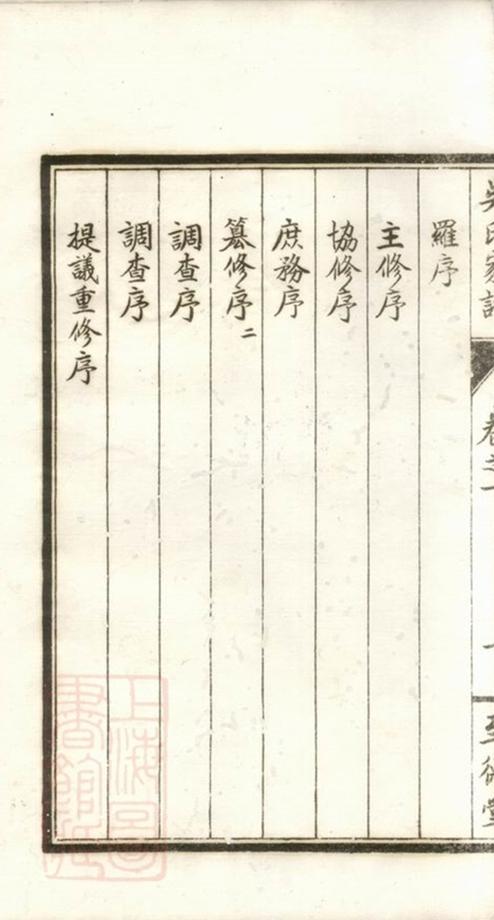 吳氏家譜 卷之一 一 至德堂
羅序
主修序
協修序
庶務序
纂修序二
調查序
調查序
提議重修序
上海圖書館藏